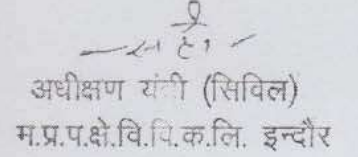 अधीक्षण यंत्री (सिविल)
म.प्र.प.क्षे.वि.वि.क.लि. इन्दौर